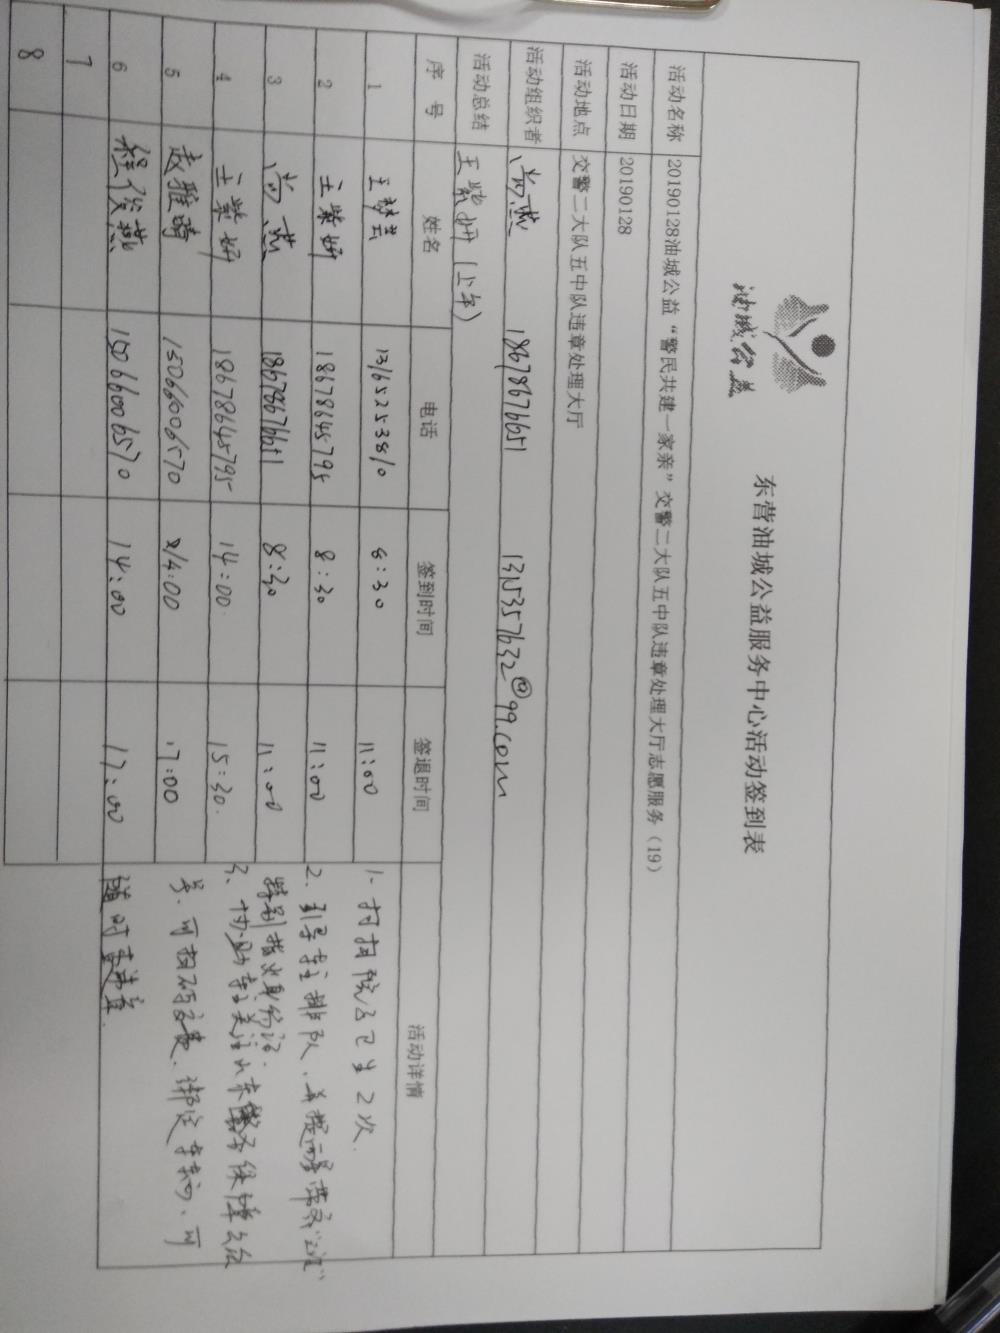 油城公益
东营油城公益服务中心活动签到表
活动名称 20190128油城公益“警民共建一家亲”交警二大队五中队违章处理大厅志愿服务（19）
活动日期 20190128
活动地点 交警二大队五中队违章处理大厅
活动组织者 尚燕 18678676651 1315357632@qq.com
活动总结 王紫妍（上午）
序号 姓名 电话 签到时间 签退时间 活动详情
1 王梦芸 13165253810 8:30 11:00
2 王紫妍 18678645795 8:30 11:00
3 尚燕 18678676651 8:30 11:00
4 王紫妍 18678645795 14:00 15:30
5 赵雅晴 15066006570 14:00 17:00
6 程俊燕 15066006570 14:00 17:00
7
8
1、打扫院子卫生2次.
2、引导车主排队、并提a需带齐证
特别指出身份证;
3、协助车主关注山东
号、可扫码交费、绑定车辆、可
随时查违章.